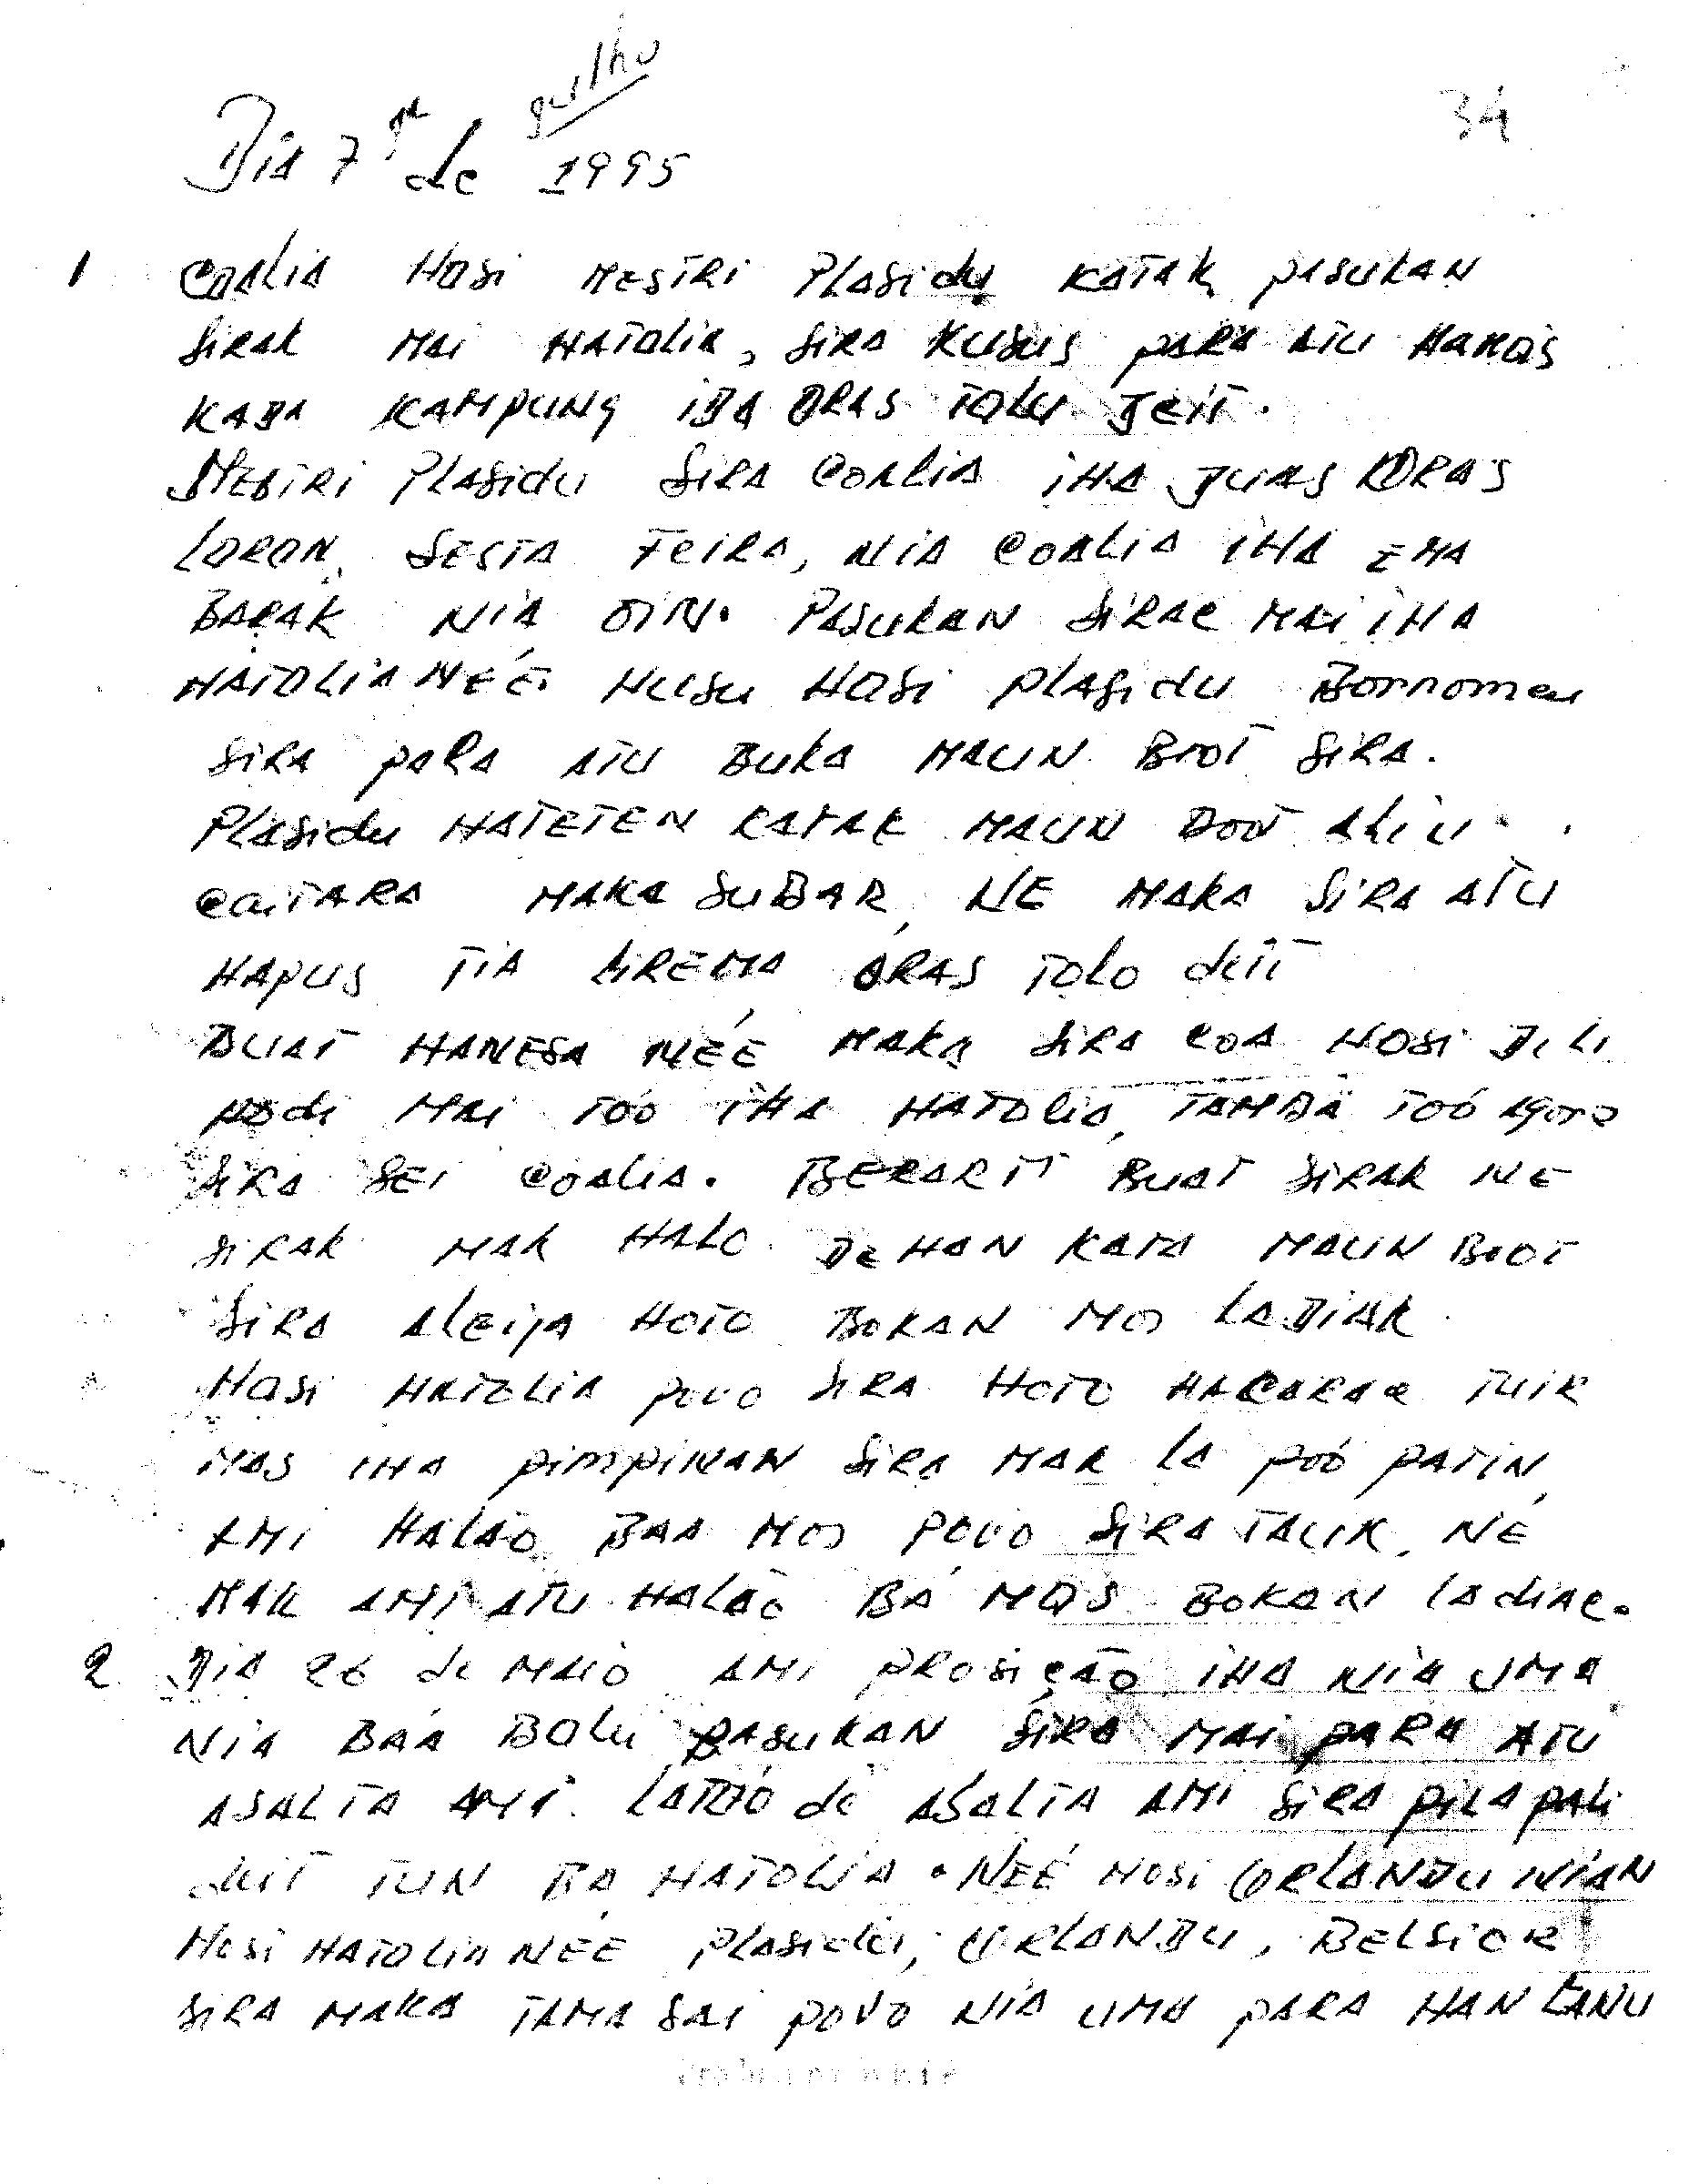 34
Dia 7 de Julho 1995
1 Coalia Hosi Mestri Plasidu Katak pasukan
Sirak Mai Hatolia, Sira Kusus para atu Hamós
Kada Kampung ida oras tolu Deit.
Mestri Plasidu Sira Coalia iha Duas oras
Loron, Sesta Feira, nia Coalia iha Ema
Barak nia oin. Pasukan Sirac Mai iha
Hatolia Neé Husu Hosi Plasidu Borromeu
Sira para atu Buka Maun Boot Sira.
Plasidu Hateten Katak Maun Boot
Maka Subar, Ne Maka Sira atu
Hapus Tia Lirema oras Tolo deit
Buat Hanesa Neé Maka Sira Coa Hosi Dili
Hodi Mai Toó iha Hatolia, Tamba Toó agora
Sira Sei Coalia. Berarti Buat Sirak Ne
Sirak Mak Halo Dehan Kata Maun Boot
Sira aleija Hoto Bokan Mos Ladiak
Hosi Hatolia povo Sira Hoto Hacarac Tuir
Mas iha pimpinan Sira Mak la poó patin,
Ami Halaó Baa Mos Povo Sira Tauk, Né
Mak ami atu Halaó Bá Mos Bokan ladiac.
2 Dia 26 de Maio ami prosição iha nia uma
Nia Baa Bolu pasukan Sira Mai para atu
asalta ami. Latoó de asalta ami Sira pila pali
deit Tun Ba Hatolia. Neé Hosi Orlandu Nian
Hosi Hatolia Neé Plasidu, Orlandu, Belsior
Sira Maka Tama Sai Povo nia uma para Han Lanu